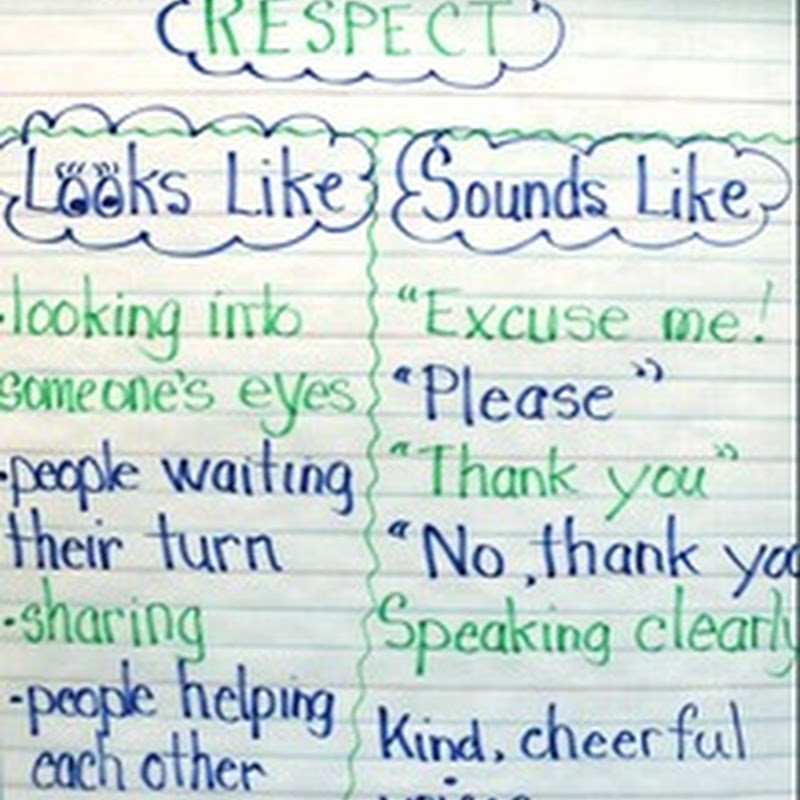 RESPECT
Looks Like
·looking into
someone's eyes
·people waiting
their turn
·sharing
-people helping
each other
Sounds Like
“Excuse me!
“Please”
“Thank you”
“No, thank yo
Speaking clearly
Kind, cheerful